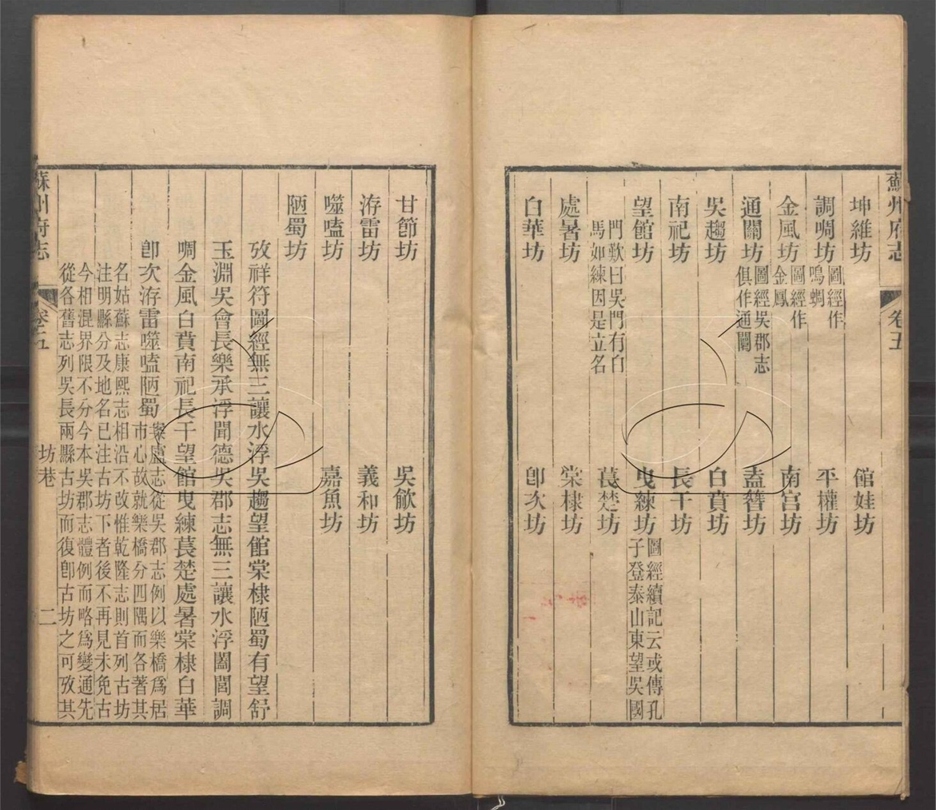 蘇州府志 卷五
坤維坊 館娃坊
調啁坊 圖經作
嗚蜩 平權坊
金風坊 圖經作
金鳳 南宮坊
通闤坊 圖經吳郡志
俱作通闠 盍簪坊
吳趨坊 白賁坊
南祀坊 長干坊
望館坊 曳練坊 圖經續記云或傳孔
子登泰山東望吳國
門歎曰吳門有白
馬如練因是立名 萇楚坊
處暑坊 棠棣坊
白華坊 卽次坊
甘節坊 吳歈坊
洊雷坊 義和坊
噬嗑坊 嘉魚坊
陋蜀坊
攷祥符圖經無三讓水浮吳趨望館棠棣陋蜀有望舒
玉淵吳會長樂承浮聞德吳郡志無三讓水浮閶闔調
啁金風白賁南祀長干望館曳練萇楚處暑棠棣白華
卽次洊雷噬嗑陋蜀 案盧志從吳郡志例以樂橋爲居
市心故就樂橋分四隅而各著其
名姑蘇志康熙志相沿不改惟乾隆志則首列古坊
注明縣分及地名已注古坊下者後不再見未免古
今相混界限不分今本吳郡志體例而略爲變通先
從各舊志列吳長兩縣古坊而復卽古坊之可攷其
蘇州府志 卷五 坊巷 二